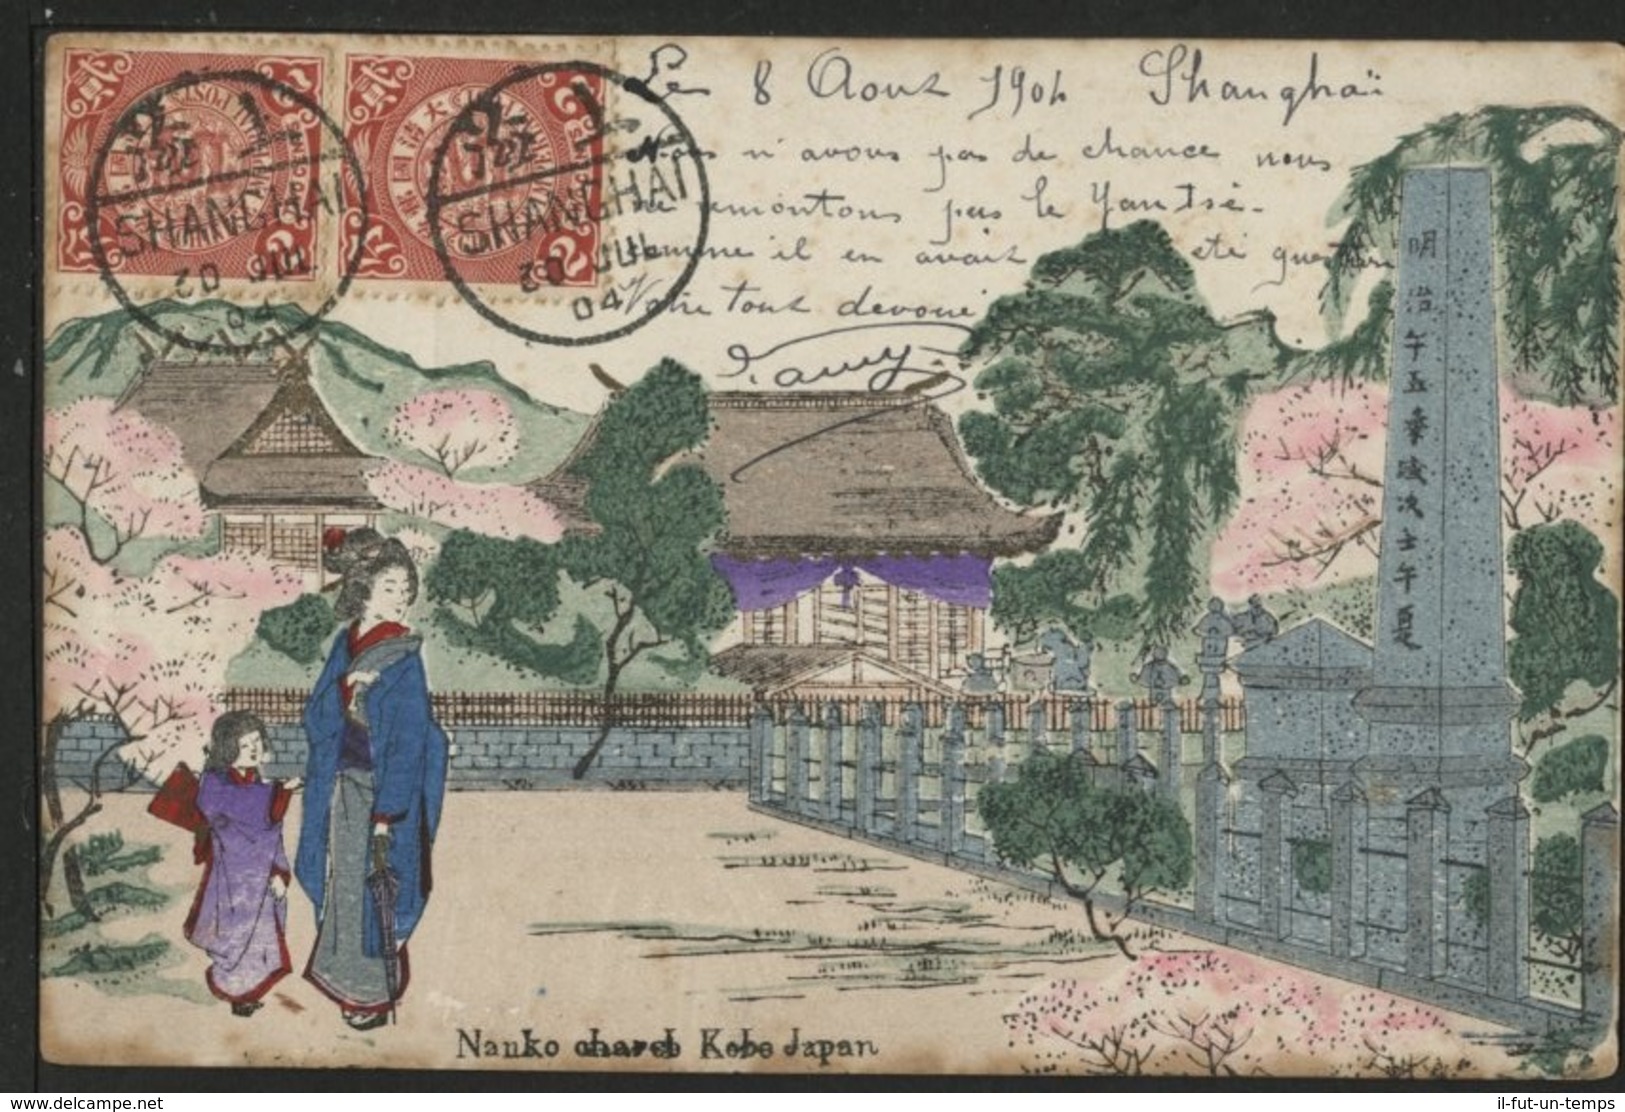 Le 8 Aout 1904 Shanghaï
Nous n'avons pas de chance nous
ne remontons pas le Yantsé
comme il en avait été question
Votre tout devoué
SHANGHAI
20 JUL
04
SHANGHAI
20 JUL
04
貳
2
貳
2
大清國郵
明治午五季歳次壬午夏
Nanko church Kobe Japan
delcampe.net
il-fut-un-temps